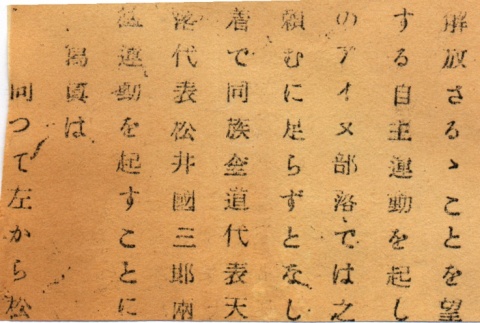 解放さるゝことを望
する自主運動を起し
のアイヌ部落では之
頼むに足らずとなし
着で同族全道代表天
落代表松井國三郎兩
運動を起すことに
寫眞は
向つて左から松